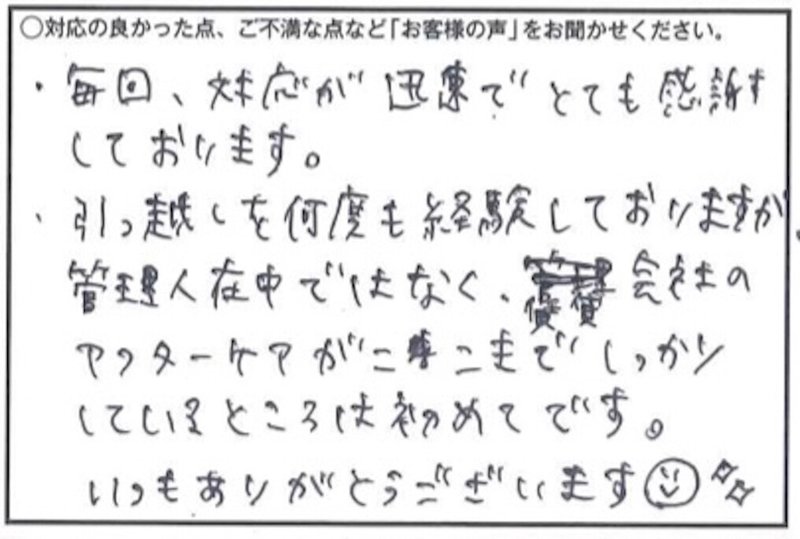 ○対応の良かった点、ご不満な点など「お客様の声」をお聞かせください。
・毎回、対応が迅速でとても感謝す
しております。
・引っ越しを何度も経験しておりますが、
管理人在中ではなく、賃貸会社の
アフターケアがここまでしっかり
しているところは初めてです。
いつもありがとうございます